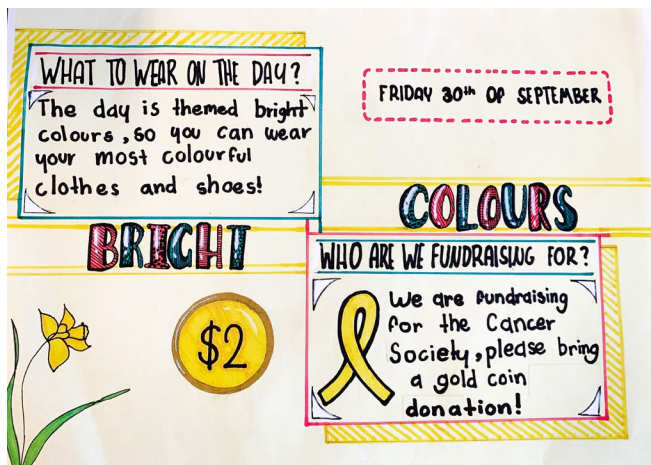 WHAT TO WEAR ON THE DAY?
The day is themed bright
colours, so you can wear
your most colourful
clothes and shoes!
FRIDAY 30th OF SEPTEMBER
BRIGHT
COLOURS
$2
WHO ARE WE FUNDRAISING FOR?
We are fundraising
for the Cancer
Society, please bring
a gold coin
donation!